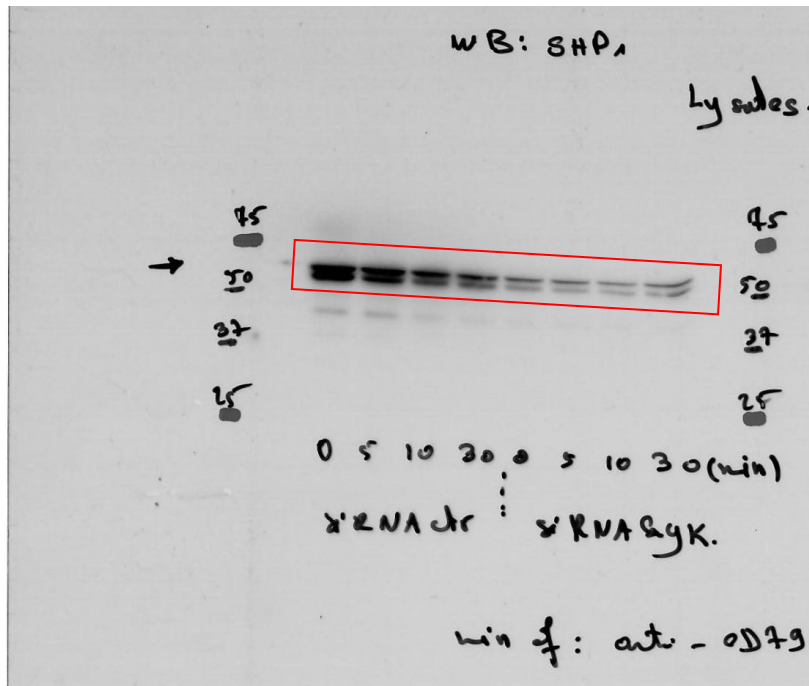 WB: SHP1
Lysates.
75 75
50 50
37 37
25 25
0 5 10 30 0 5 10 30 (min)
siRNA ctr siRNA
min of: anti-CD79